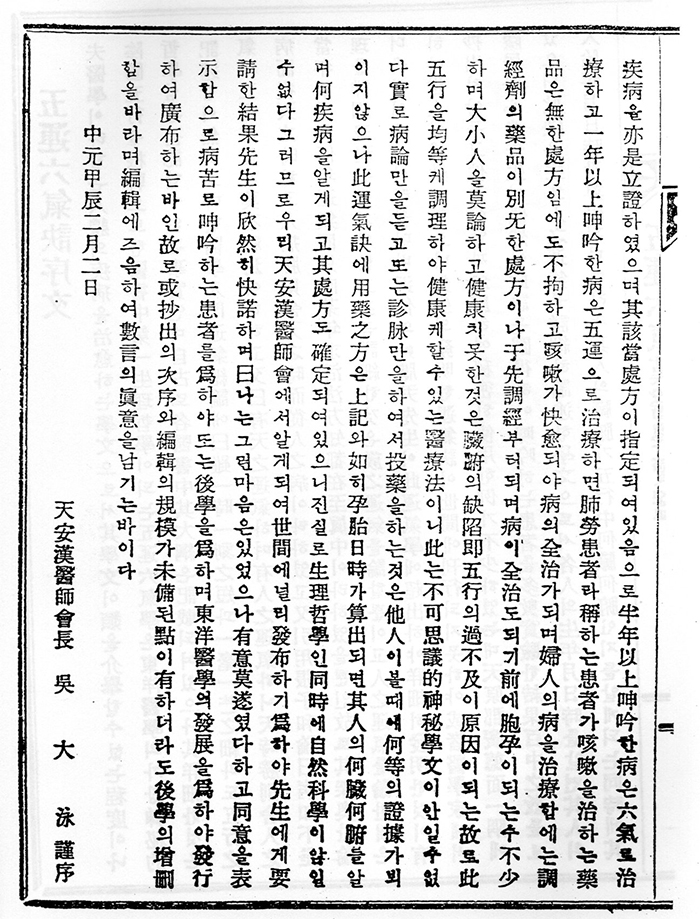 疾病을亦是立證하였으며其該當處方이指定되여있음으로半年以上呻吟한病은六氣로治
療하고一年以上呻吟한病은五運으로治療하면肺勞患者라稱하는患者가咳嗽을治하는藥
品은無한處方임에도不拘하고咳嗽가快愈되야病의全治가되며婦人의病을治療함에는調
經劑의藥品이別无한處方이나于先調經부터되며病이全治도되기前에胞孕이되는수不少
하며大小人을莫論하고健康치못한것은臟腑의缺陷即五行의過不及이原因이되는故로此
五行을均等케調理하야健康케할수있는醫療法이니此는不可思議的神秘學文이안일수없
다實로病論만을듣고또는診脉만을하여서投藥을하는것은他人이볼때에何等의證據가뵈
이지않으나此運氣訣에用藥之方은上記와如히孕胎日時가算出되면其人의何臟何腑를알
며何疾病을알게되고其處方도確定되여있으니진실로生理哲學인同時에自然科學이않일
수없다그러므로우리天安漢醫師會에서알게되여世間에널리發布하기爲하야先生에게要
請한結果先生이欣然히快諾하며曰나는그런마음은있었으나有意莫遂였다하고同意을表
示함으로病苦로呻吟하는患者를爲하야또는後學을爲하며東洋醫學의發展을爲하야發行
하여廣布하는바인故로或抄出의次序와編輯의規模가未備된點이有하더라도後學의增刪
함을바라며編輯에즈음하여數言의眞意을남기는바이다
中元甲辰二月二日
天安漢醫師會長 吳大泳謹序